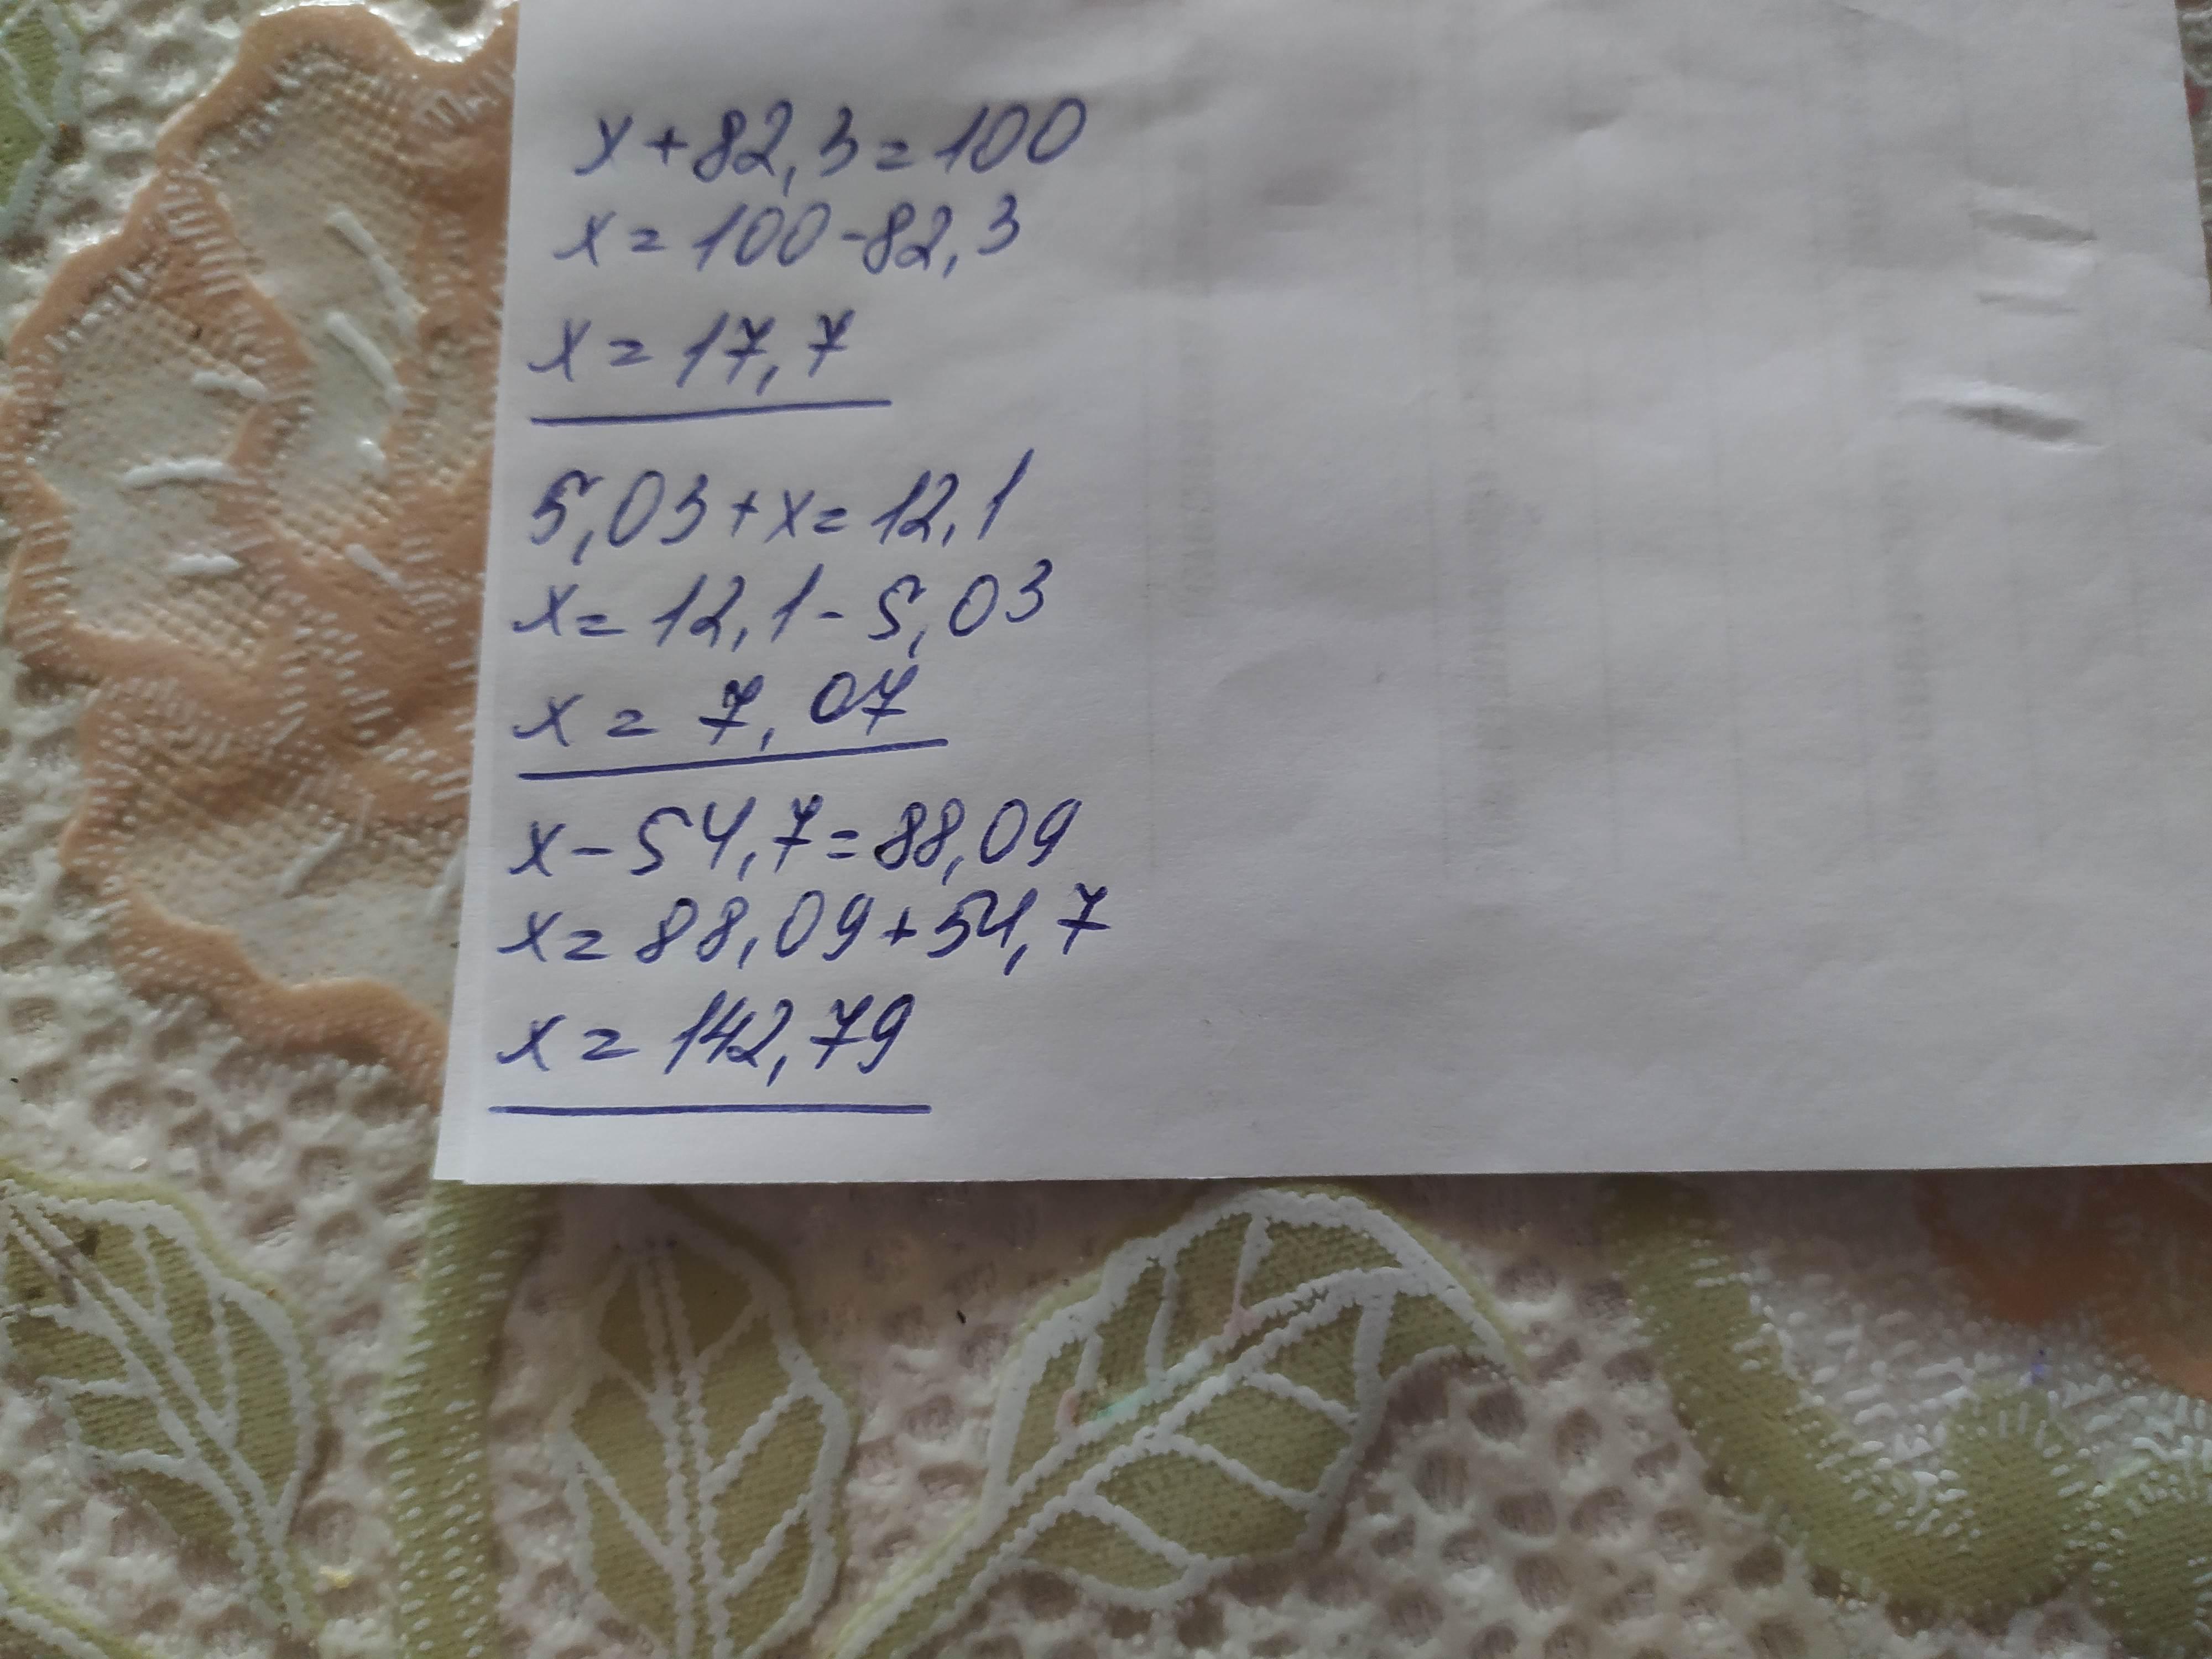 x+82,3=100
x=100-82,3
x=17,7
5,03+x=12,1
x=12,1-5,03
x=7,07
x-54,7=88,09
x=88,09+54,7
x=142,79